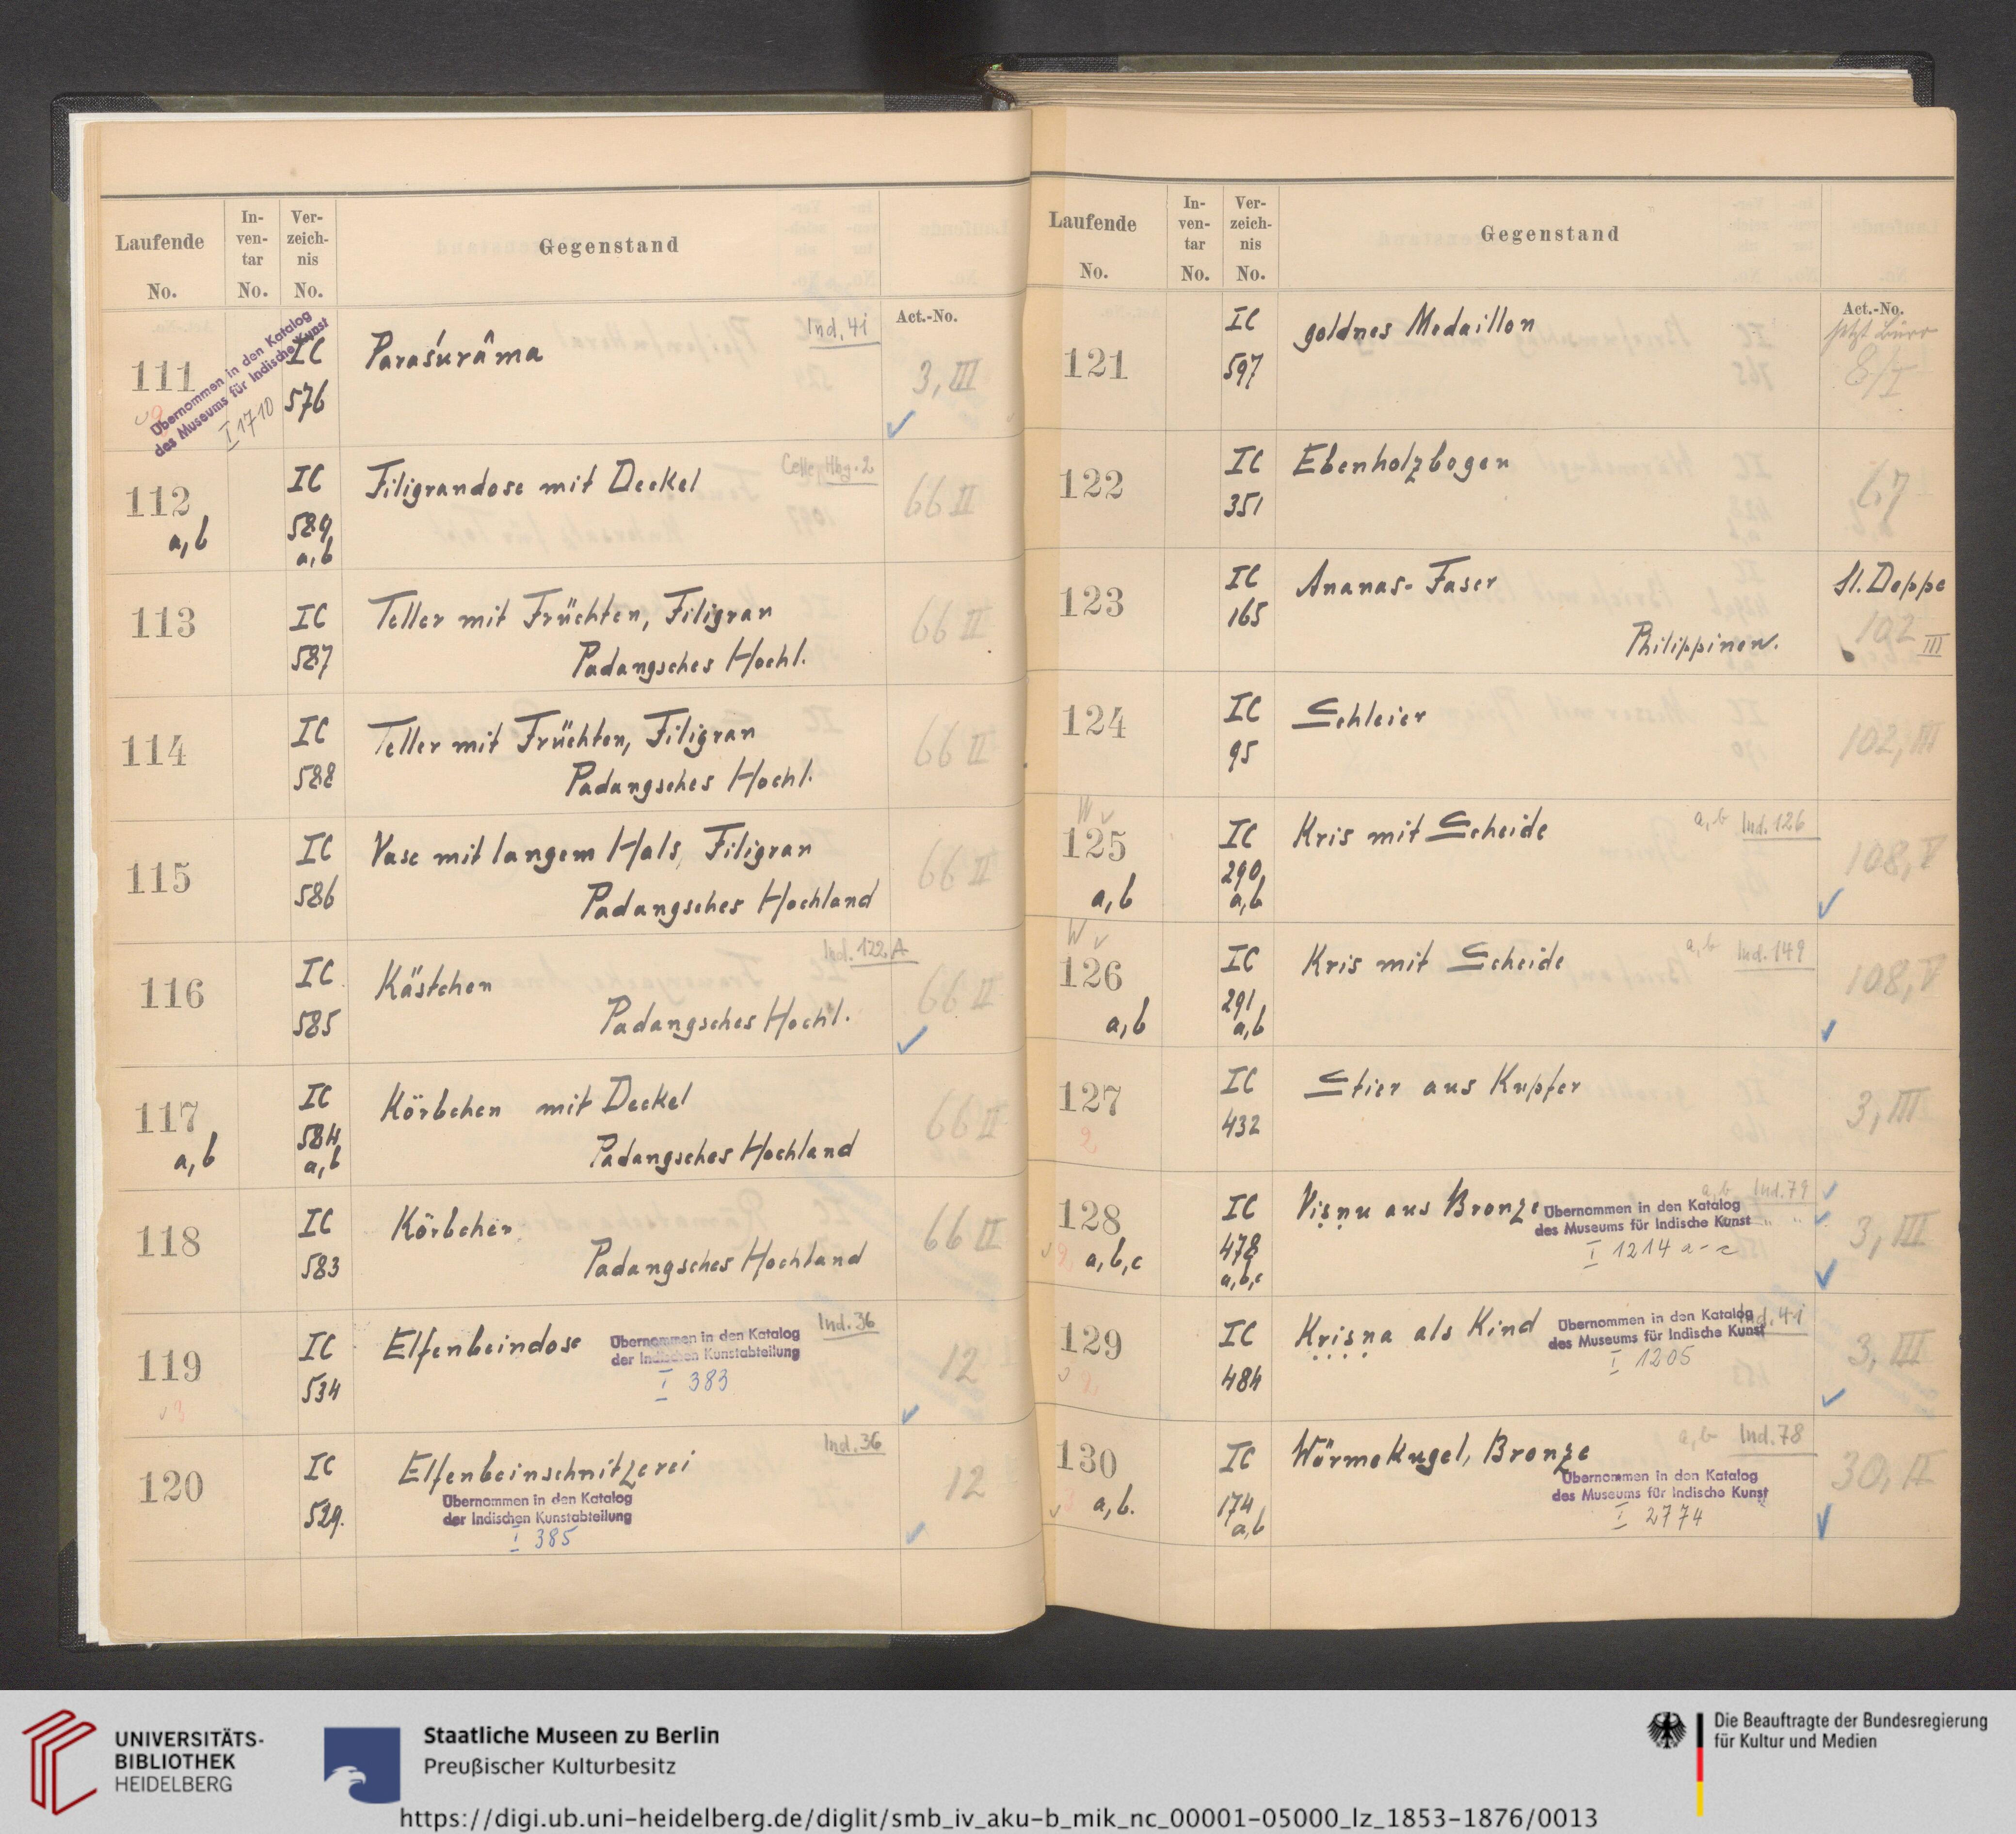 Laufende No.
In-ventar No.
Ver-zeich-nis No.
Gegenstand
Act.-No.
111
IC
576
Paraśurâma
Ind. 41
3, III
Übernommen in den Katalog
des Museums für Indische Kunst
I 1710
112
a, b
IC
589,
a, b
Filigrandose mit Deckel
66 II
113
IC
587
Teller mit Früchten, Filigran
Padangsches Hochl.
66 II
114
IC
588
Teller mit Früchten, Filigran
Padangsches Hochl.
66 II
115
IC
586
Vase mit langem Hals, Filigran
Padangsches Hochland
66 II
116
IC
585
Kästchen
Ind. 122 A
Padangsches Hochl.
66 II
117
a, b
IC
584,
a, b
Körbchen mit Deckel
Padangsches Hochland
66 II
118
IC
583
Körbchen
Padangsches Hochland
66 II
119
IC
534
Elfenbeindose
Ind. 36
Übernommen in den Katalog
der Indischen Kunstabteilung
I 383
12
120
IC
529.
Elfenbeinschnitzerei
Ind. 36
Übernommen in den Katalog
der Indischen Kunstabteilung
I 385
12
Laufende No.
In-ventar No.
Ver-zeich-nis No.
Gegenstand
Act.-No.
121
IC
597
goldnes Medaillon
8/I
122
IC
351
Ebenholzbogen
67
123
IC
165
Ananas-Faser
Philippinen.
St. Deppe
102 III
124
IC
95
Schleier
102, III
W v
125
a, b
IC
290,
a, b
Kris mit Scheide
a, b Ind. 126
108, V
W v
126
a, b
IC
291,
a, b
Kris mit Scheide
a, b Ind. 149
108, V
127
IC
432
Stier aus Kupfer
3, III
128
a, b, c
IC
478
a, b, c
Viṣṇu aus Bronze
a, b Ind. 79
Übernommen in den Katalog
des Museums für Indische Kunst
I 1214 a-c
3, III
129
IC
484
Kṛiṣṇa als Kind
Ind. 41
Übernommen in den Katalog
des Museums für Indische Kunst
I 1205
3, III
130
a, b.
IC
174,
a, b
Wärmekugel, Bronze
a, b Ind. 78
Übernommen in den Katalog
des Museums für Indische Kunst
I 2774
30, A
UNIVERSITÄTS-
BIBLIOTHEK
HEIDELBERG
Staatliche Museen zu Berlin
Preußischer Kulturbesitz
Die Beauftragte der Bundesregierung
für Kultur und Medien
https://digi.ub.uni-heidelberg.de/diglit/smb_iv_aku-b_mik_nc_00001-05000_lz_1853-1876/0013